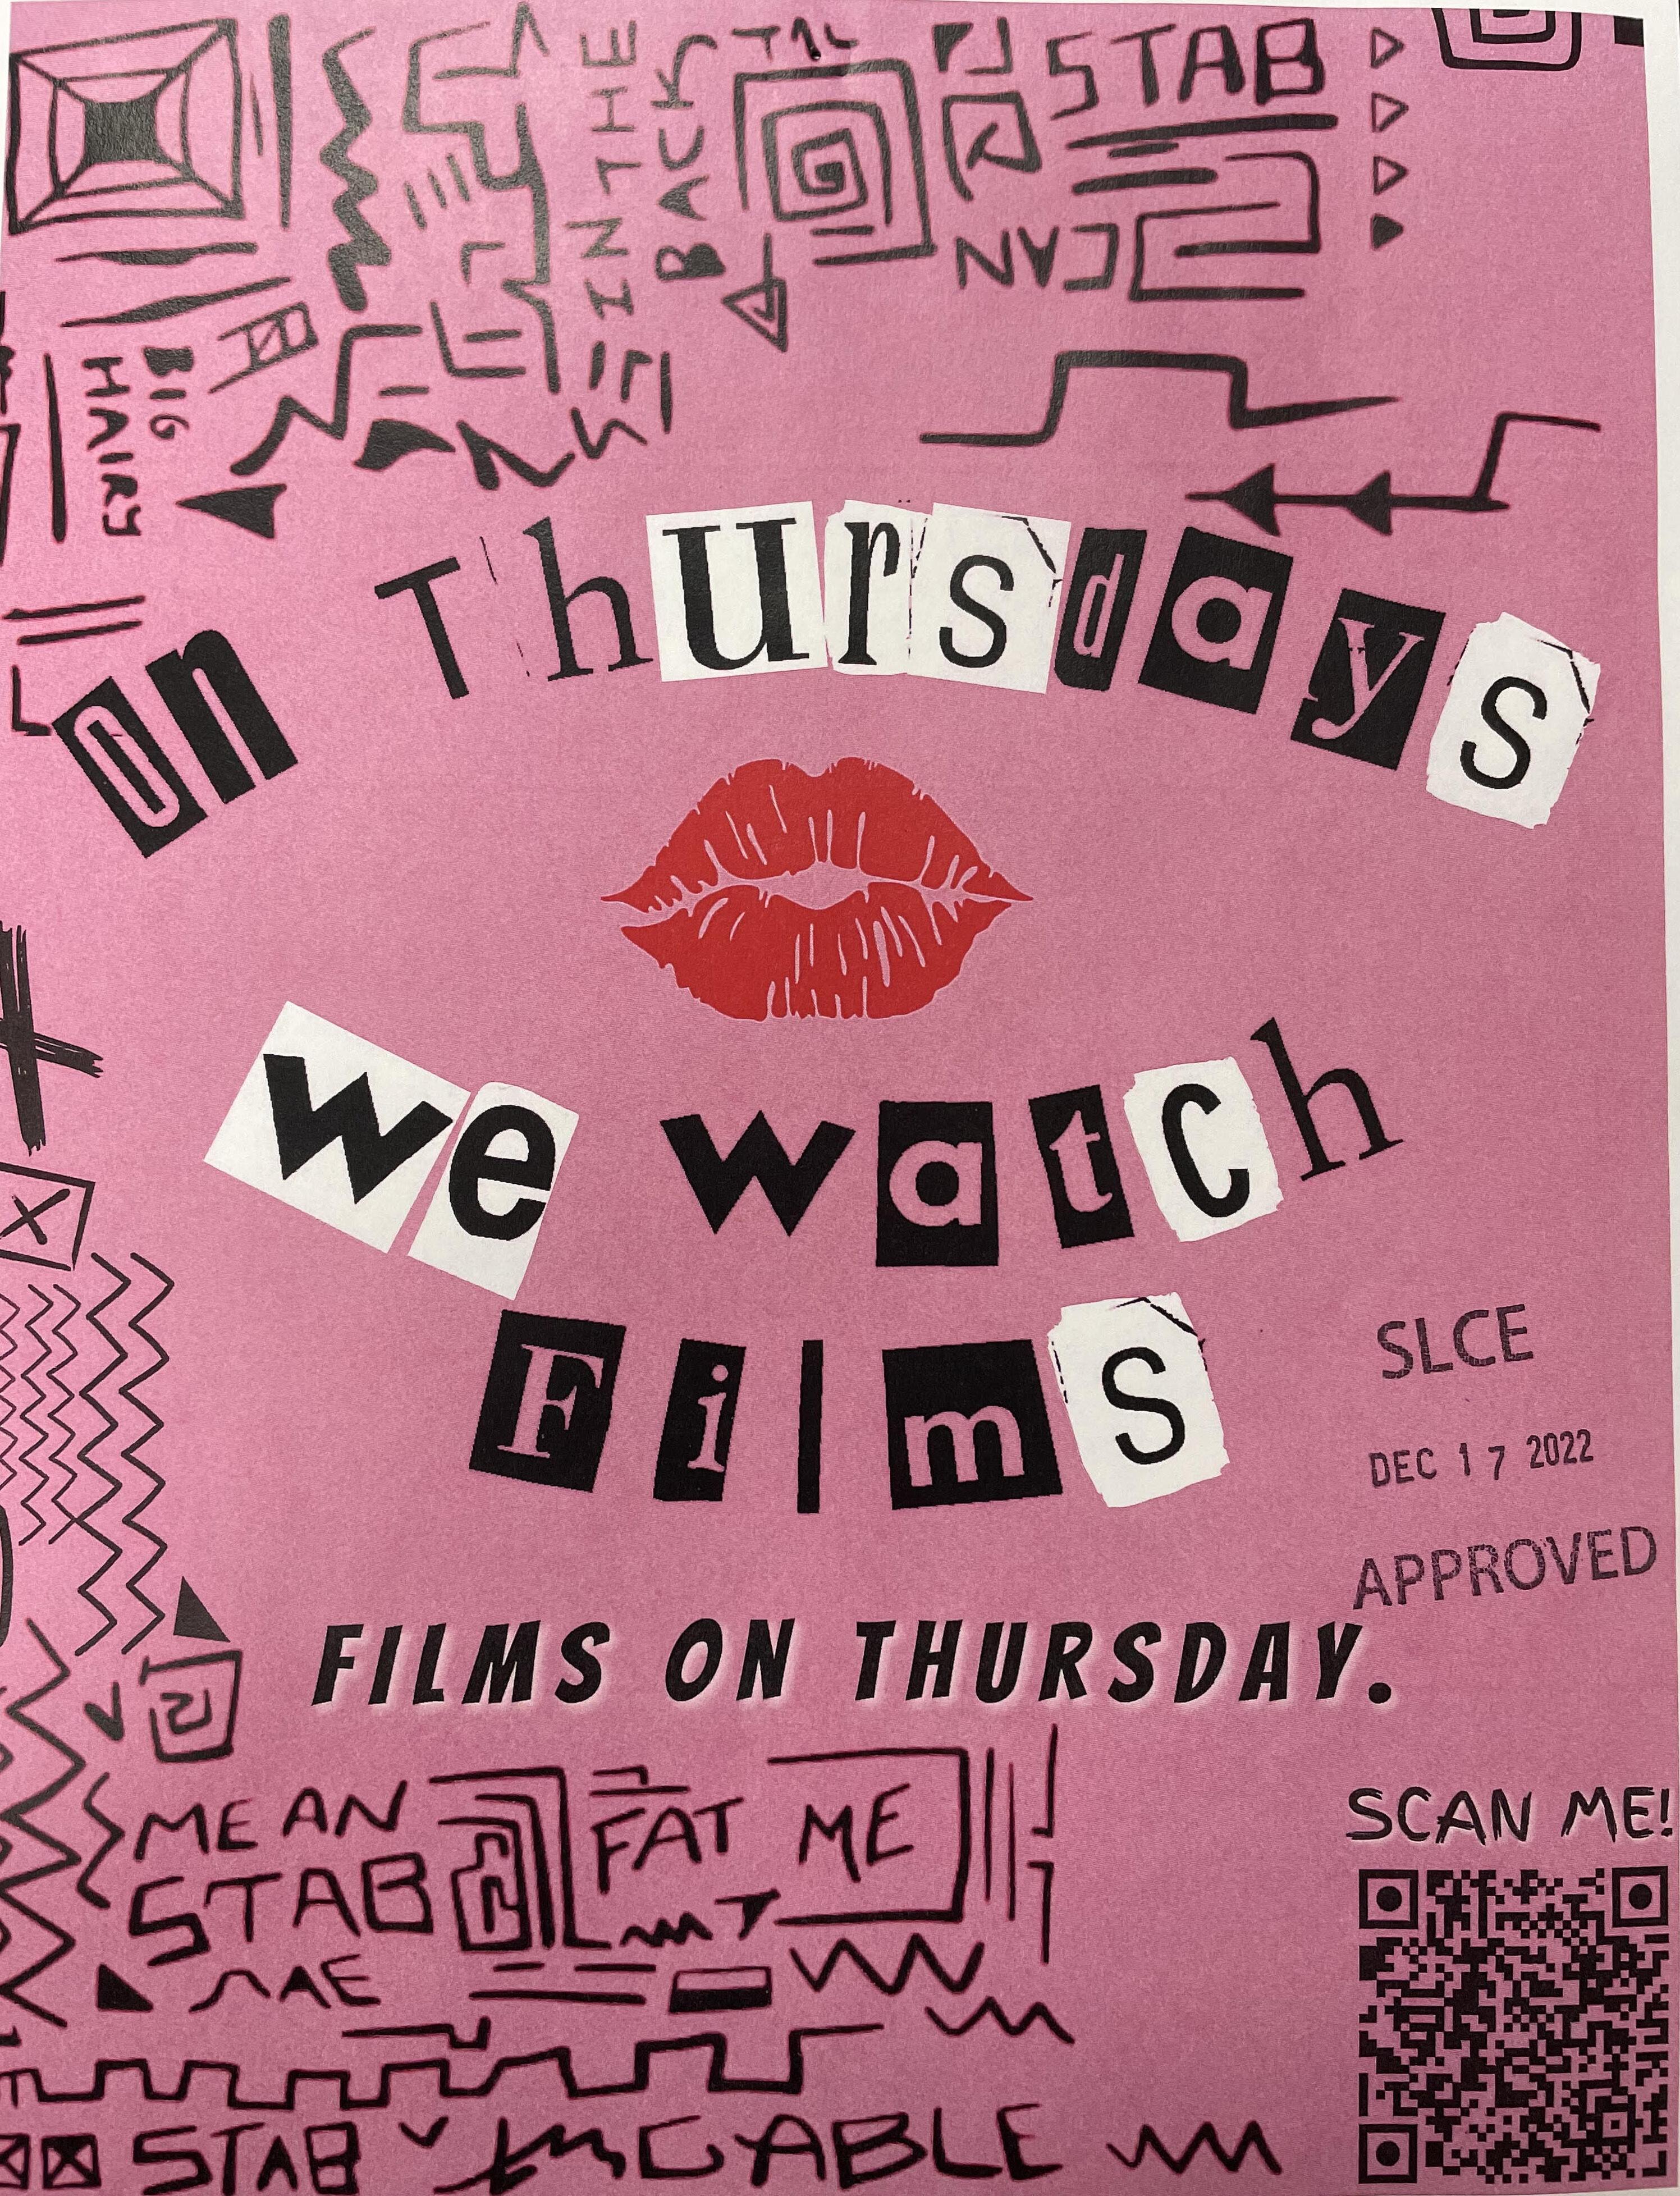 STAB
IN THE
BACK
BIG
HAIRY
on Thursdays
we watch
Films
SLCE
DEC 17 2022
APPROVED
FILMS ON THURSDAY.
SCAN ME!
MEAN
STAB
FAT ME
STAB
GABLE